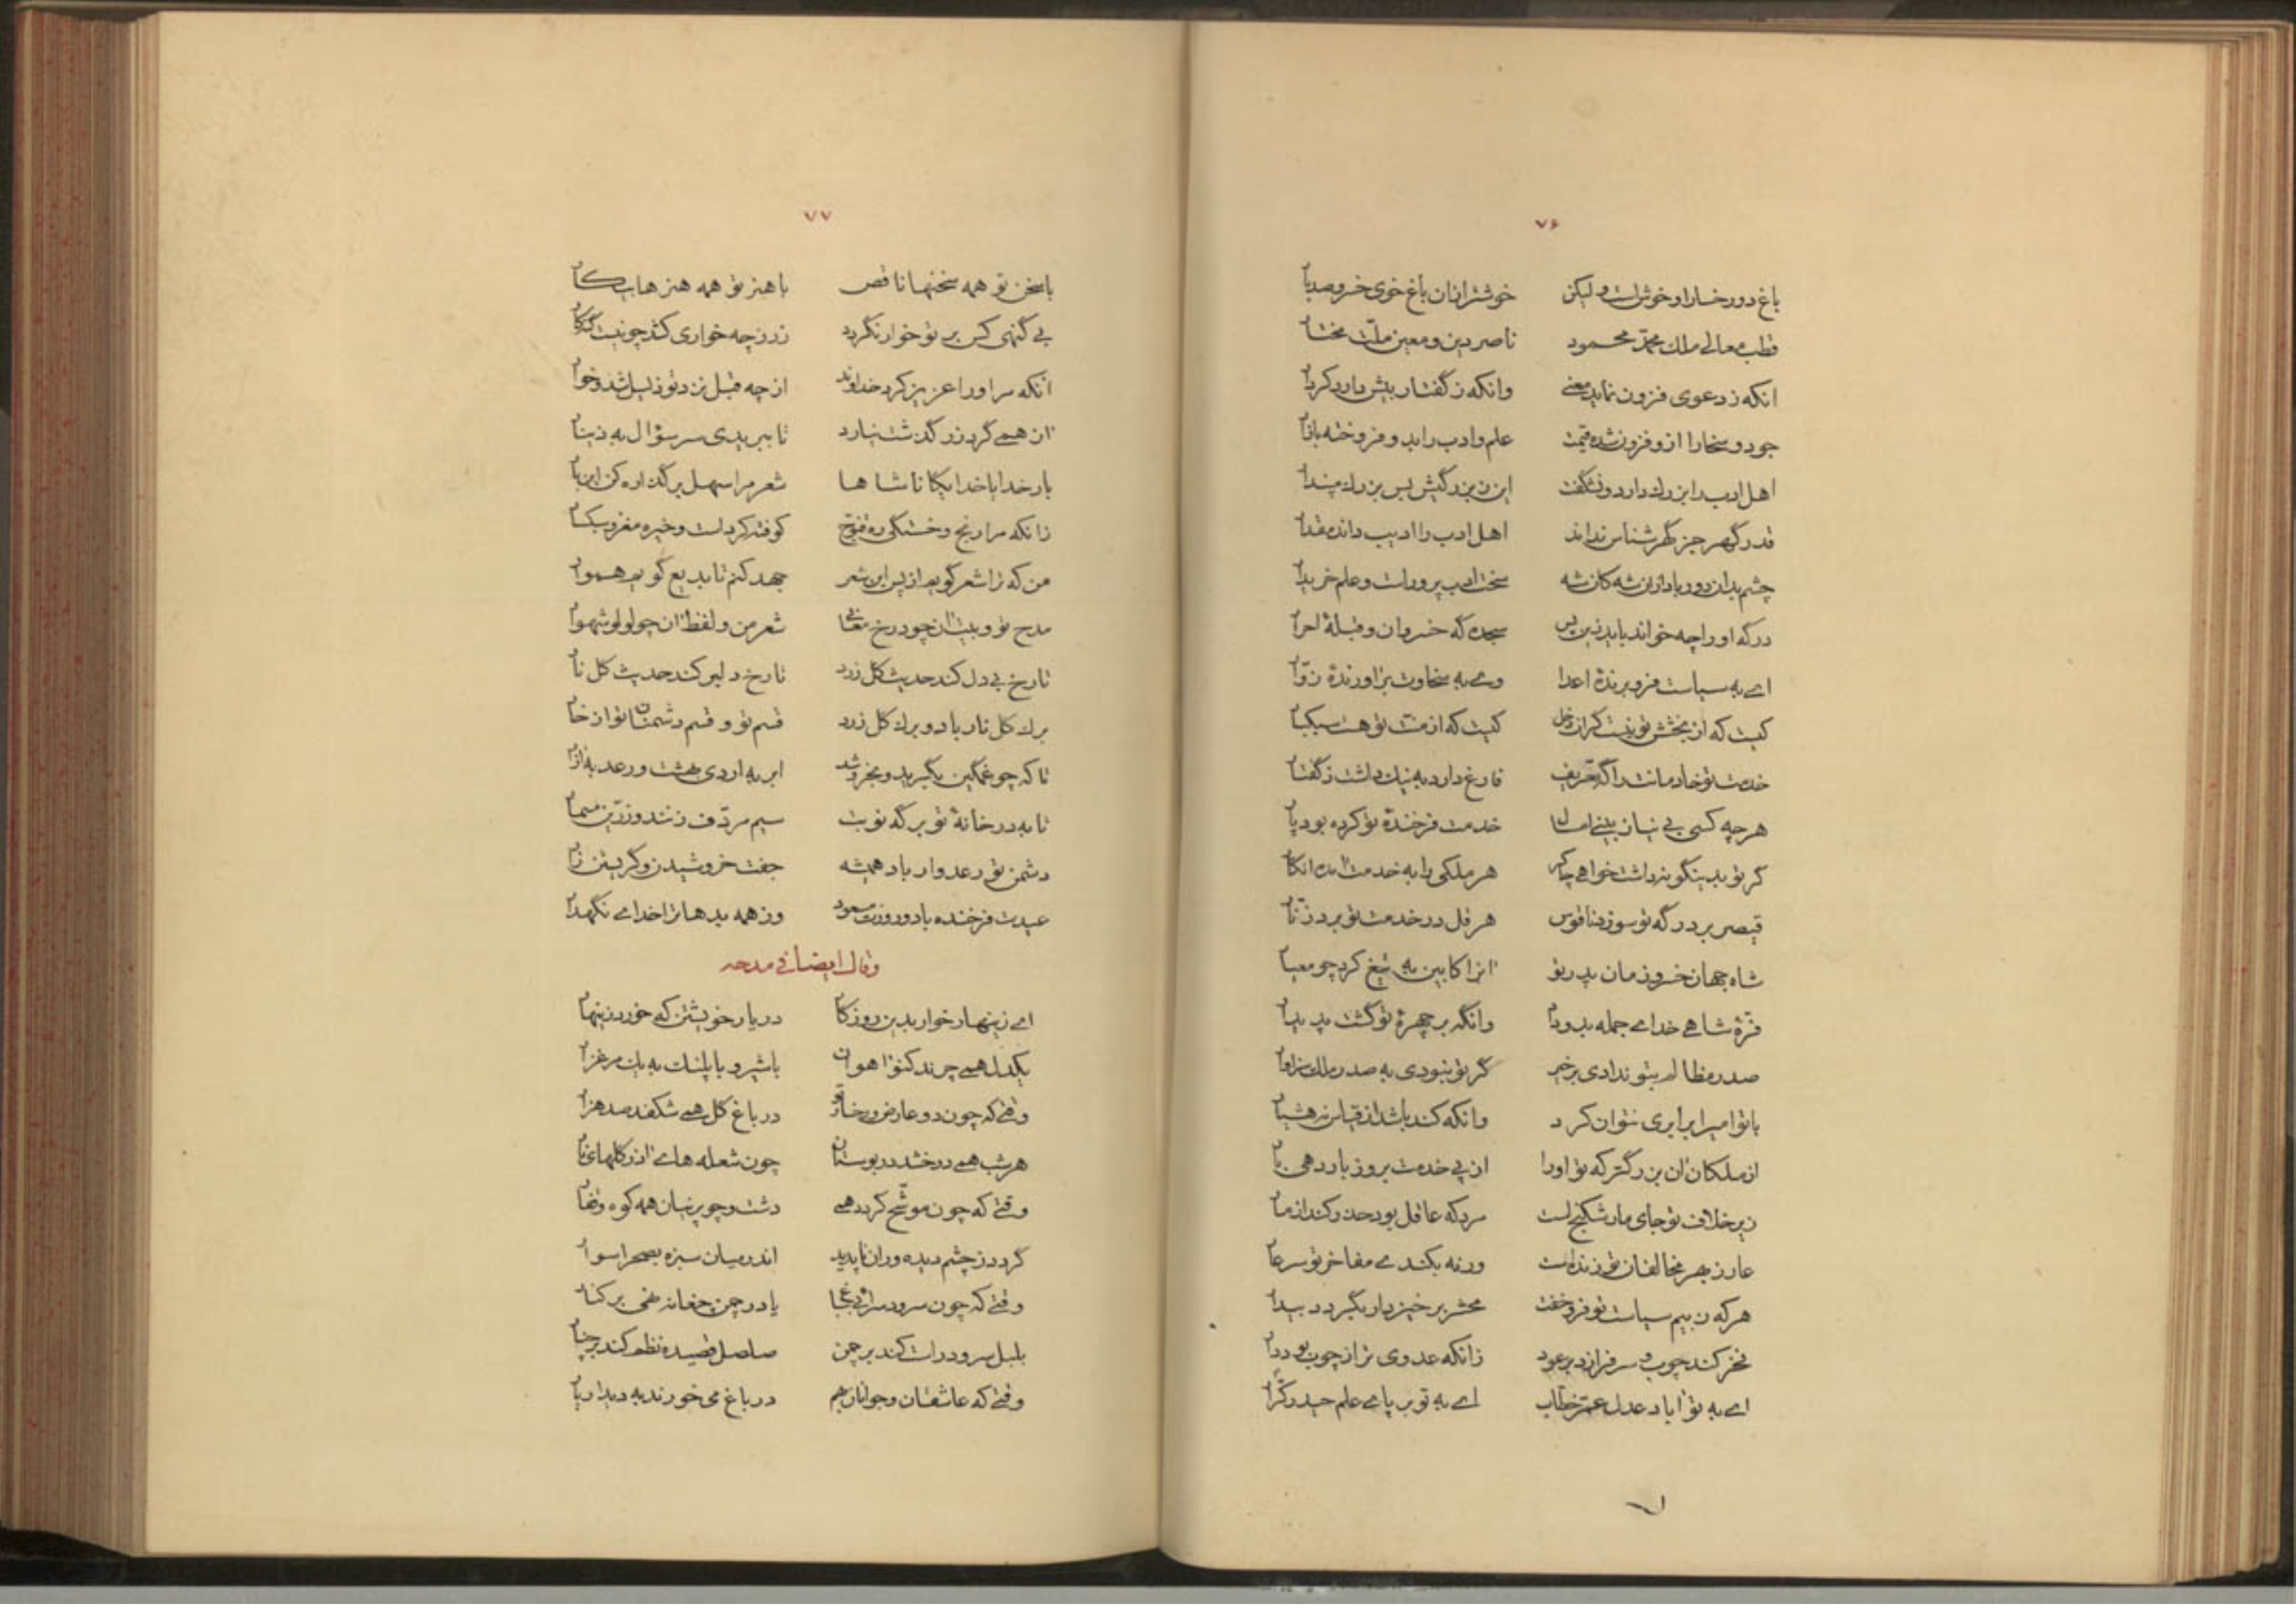 ۷۶
باغ دو رخسار او خوش است ولیکن خوشتر ازان باغ خوی خسرو صد بار
قطب معالی ملک محمد محمود ناصر دین و معین ملت مختار
انکه ز دعوی فزون نماید معنی وانکه ز گفتار بیش دارد کردار
جود و سخا را ازو فزون شده قیمت علم و ادب را بدو فروخته بازار
اهل ادب را بزرگ دارد و نشگفت این ز بزرگیش بس بزرگ مپندار
قدر گهر جز گهرشناس نداند اهل ادب را ادیب داند مقدار
چشم بدان دور باد ازان شه کان شه سخت ادب پرور است و علم خریدار
درگه او را چه خواند باید زین پس سجده گه خسروان و قبلهٔ احرار
ای به سیاست فرو برندهٔ اعدا وی به سخاوت براورندهٔ زوّار
کیست که از بخشش تو نیست گران دخل کیست که از منت تو هست سبکبار
خدمت تو خادمانت را گه تعریف فارغ دارد به نیک داشت ز گفتار
هرچه کسی بی نیاز بینی امسال خدمت فرخندهٔ تو کرده بود پار
گر تو بدینگونه داشت خواهی چاکر هر ملکی را به خدمت اید انکار
قیصر بر درگه تو سوزد ناقوس هرقل در خدمت تو بردّ زنّار
شاه جهان خسرو زمان پدر تو انرا کابین به تیغ کرد چو معیار
فرّهٔ شاهی خدای جمله بدو داد وانگه بر چهرهٔ تو گشت پدیدار
صدر مظالم بتو ندادی بر خیر گر تو نبودی به صدر ملک سزاوار
با تو امیرا برابری نتوان کرد وانکه کند باشد از قیاس نه هشیار
از ملکان ان بزرگتر که تو او را از پی خدمت بروز بار دهی بار
زیر خلاف تو جای مار شکنج است مرد که عاقل بود حذر کند از مار
عار ز بهر مخالفان تو زنده است ورنه بکندی مفاخر تو سر عار
هرکه ز بیم سیاست تو فرو خفت محشر برخیزد او نگردد بیدار
فخر کند چوب و سر فرازد بر عود زانکه عدوی ترا ز چوب بود دار
ای به تو اباد عدل عمّر خطاب ای به تو بر پای علم حیدر کرّار
۷۷
با سخن تو همه سخنها ناقص با هنر تو همه هنرها بی کار
بی گنهی کس بر تو خوار نگردد زر ز چه خواری کشد چو نیست گنه کار
انکه مر او را عزیز کرد خداوند از چه قبل نزد تو ذلیل شد و خوار
ان همی گرد زر گذشت نیارد تا ببریدی سر سؤال به دینار
بار خدایا خدایگانا شاها شعر مرا سهل برگذاره کن این بار
زانکه مرا رنج و خستگی ره قنّوج کوفته کرد است و خیره مغز و سبکسار
من که ترا شعر گویم از پس این شعر جهد کنم تا بدیع گویم هموار
مدح تو و بیت ان چو در رخ معنی شعر من و لفظ ان چو لولو شهوار
تا رخ بی دل کند حدیث گل زرد تا رخ دلبر کند حدیث گل نار
برگ گل نار باد و برگ گل زرد قسم تو و قسم دشمنان تو از خار
تا که چو غمگین بگرید و بخروشد ابر به اردی بهشت و رعد به ازار
تا به در خانهٔ تو برگه نوبت سیم مردّف زنند و زرّین مسمار
دشمن تو رعدوار باد همیشه جفت خروشیدن و گریستن زار
عیدت فرخنده باد و روزت مسعود وز همه بدها ترا خدای نگهدار
وقال ایضا فی مدحه
ای زینهار خوار بدین روزگار در یار خویشتن که خورد زینهار
یکدل همی چرند کنون اهوان با شیر و با پلنگ به یک مرغزار
وقتی که چون دو عارض و رخسار تو در باغ گل همی شکفد صد هزار
هر شب همی درخشد در بوستان چون شعله های اذر گلهای نار
وقتی که چون موشّح گردد همی دشت و چو پرنیان همه کوه و قفار
گردد ز چشم دیده وران ناپدید اندر میان سبزه بصحرا سوار
وقتی که چون سرود سرائی بباغ یا در چمن چغانه نهی بر کنار
بلبل سرود راست کند بر چمن صلصل قصیده نظم کند بر چنار
وقتی که عاشقان و جوانان بهم در باغ می خورند به دیدار یار